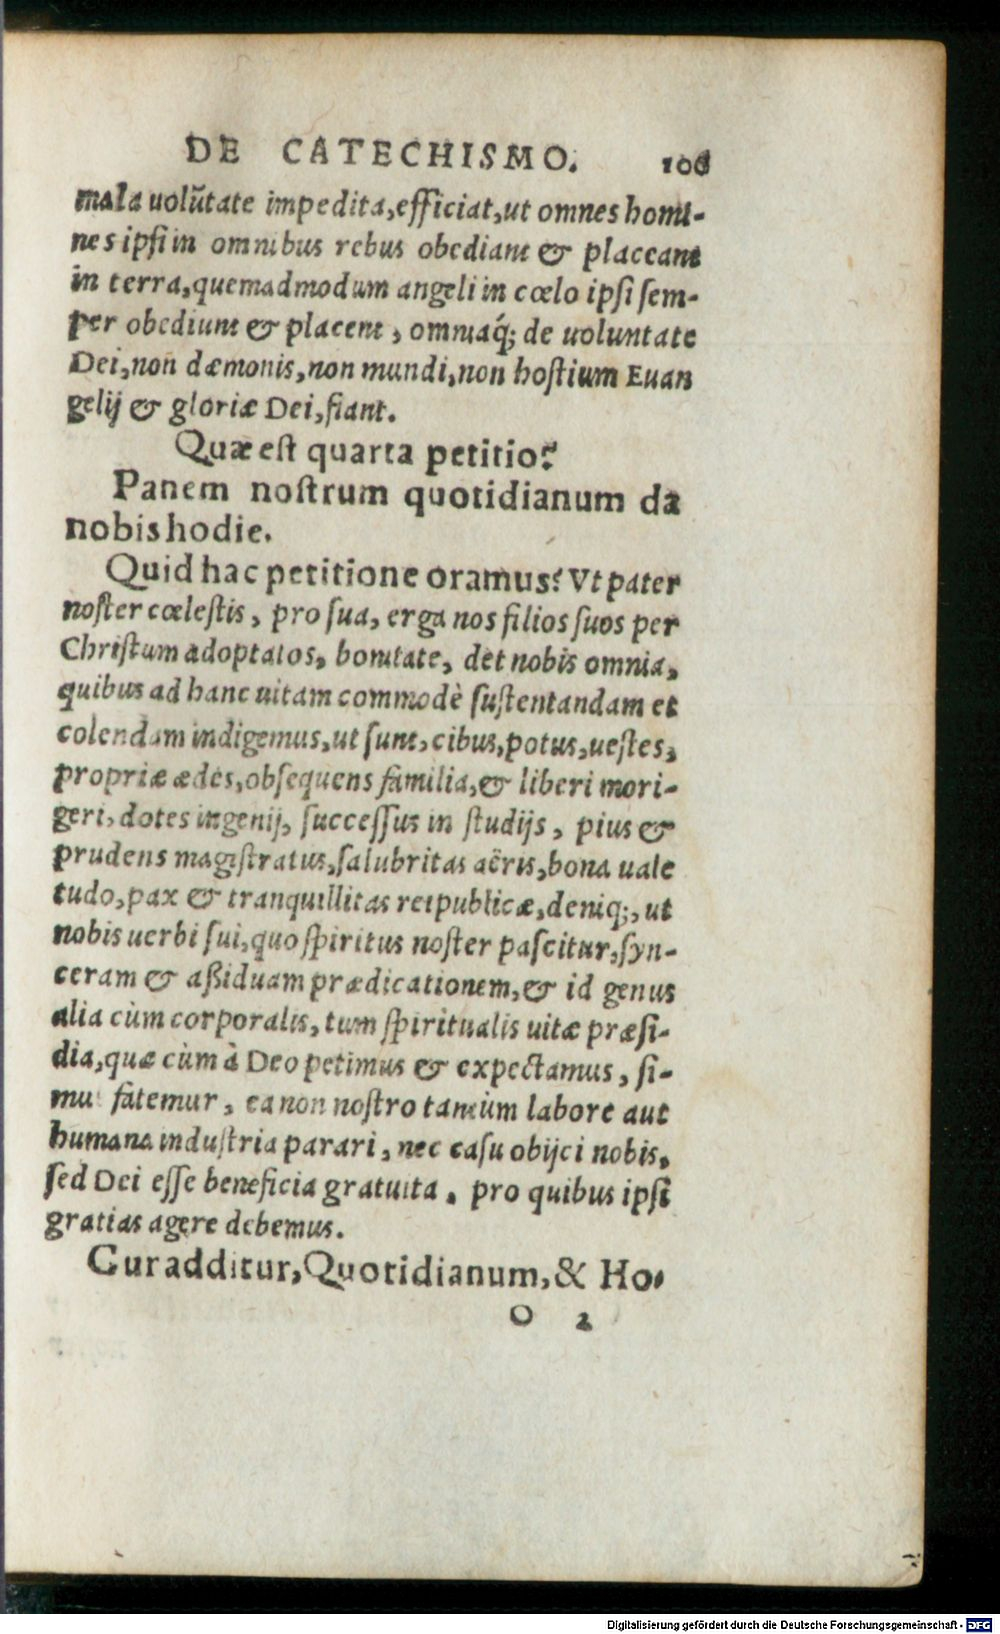 DE CATECHISMO. 106
mala uolũtate impedita,efficiat,ut omnes homi-
nes ipsi in omnibus rebus obediant & placeant
in terra,quemadmodum angeli in cœlo ipsi sem-
per obediunt & placent, omniaq́; de uoluntate
Dei,non dæmonis,non mundi,non hostium Euan
gelij & gloriæ Dei,fiant.
Quæ est quarta petitio?
Panem nostrum quotidianum da
nobis hodie.
Quid hac petitione oramus? Vt pater
noster cœlestis, pro sua, erga nos filios suos per
Christum adoptatos, bonitate, det nobis omnia,
quibus ad hanc uitam commodè sustentandam et
colendam indigemus,ut sunt,cibus,potus,uestes,
propriæ ædes,obsequens familia,& liberi mori-
geri,dotes ingenij, successus in studijs, pius &
prudens magistratus,salubritas aëris,bona uale
tudo,pax & tranquillitas reipublicæ,deniq;,ut
nobis uerbi sui,quo spiritus noster pascitur,syn-
ceram & aßiduam prædicationem,& id genus
alia cùm corporalis, tum spiritualis uitæ præsi-
dia,quæ cùm à Deo petimus & expectamus, si-
mul fatemur, ea non nostro tantùm labore aut
humana industria parari, nec casu obijci nobis,
sed Dei esse beneficia gratuita, pro quibus ipsi
gratias agere debemus.
Cur additur,Quotidianum,& Ho-
O 2
Digitalisierung gefördert durch die Deutsche Forschungsgemeinschaft - DFG